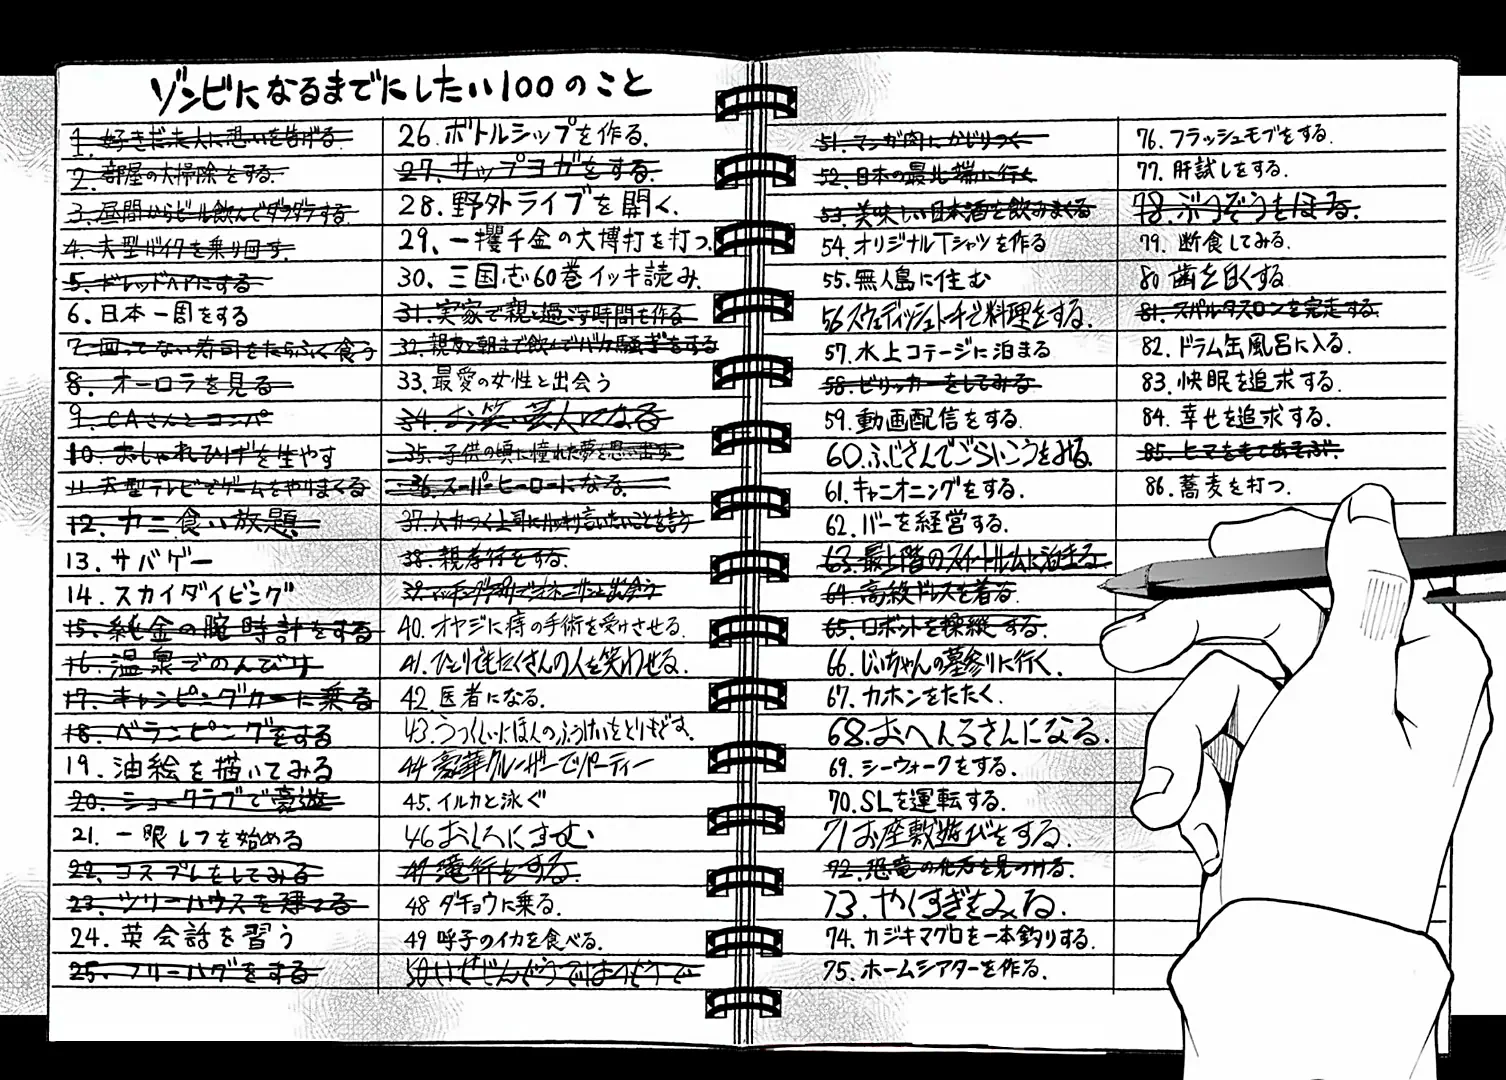 ゾンビになるまでにしたい100のこと
1. 好きだった人に想いを告げる.
2. 部屋の大掃除をする.
3. 昼間からビール飲んでダラダラする
4. 大型バイクを乗り回す.
5. ドレッドヘアにする
6. 日本一周をする
7. 回ってない寿司をたらふく食う
8. オーロラを見る
9. CAさんとコンパ
10. おしゃれひげを生やす
11. 大型テレビでゲームをやりまくる
12. カニ食い放題
13. サバゲー
14. スカイダイビング
15. 純金の腕時計をする
16. 温泉でのんびり
17. キャンピングカーに乗る
18. ベランピングをする
19. 油絵を描いてみる
20. ショークラブで豪遊
21. 一眼レフを始める
22. コスプレをしてみる
23. ツリーハウスを建てる
24. 英会話を習う
25. フリーハグをする
26. ボトルシップを作る.
27. サップヨガをする.
28. 野外ライブを開く.
29. 一攫千金の大博打を打つ.
30. 三国志60巻イッキ読み.
31. 実家で親と過ごす時間を作る
32. 親友と朝まで飲んでバカ騒ぎをする
33. 最愛の女性と出会う
34. お笑い芸人になる
35. 子供の頃に憧れた夢を思い出す
36. スーパーヒーローになる.
37. ムカつく上司にハッキリ言いたいことを言う
38. 親孝行をする.
39. マッチングアプリでオネーサンと出会う
40. オヤジに痔の手術を受けさせる.
41. ひとりでもたくさんの人を笑わせる.
42. 医者になる.
43. うつくしいにほんのふうけいをとりもどす.
44 豪華クルーザーでパーティー
45. イルカと泳ぐ
46 おしろにすむ
47 滝行をする.
48 ダチョウに乗る.
49 呼子のイカを食べる.
51. マンガ肉にかじりつく
52. 日本の最北端に行く
53. 美味しい日本酒を飲みまくる
54. オリジナルTシャツを作る
55. 無人島に住む
56 スウェディッシュトーチで料理をする.
57. 水上コテージに泊まる
58. ビリッカーをしてみる
59. 動画配信をする.
60. ふじさんでごらいこうをみる.
61. キャニオニングをする.
62. バーを経営する.
63. 最上階のスイートルームに泊まる
64. 高級ドレスを着る.
65. ロボットを操縦する.
66. じいちゃんの墓参りに行く.
67. カホンをたたく.
68. おへんろさんになる.
69. シーウォークをする.
70. SLを運転する.
71 お座敷遊びをする.
72. 恐竜の化石を見つける.
73. やくすぎをみる.
74. カジキマグロを一本釣りする.
75. ホームシアターを作る.
76. フラッシュモブをする.
77. 肝試しをする.
78. ぶつぞうをほる.
79. 断食してみる.
80 歯を白くする
81. スパルタスロンを完走する.
82. ドラム缶風呂に入る.
83. 快眠を追求する.
84. 幸せを追求する.
85. ヒマをもてあそぶ.
86. 蕎麦を打つ.